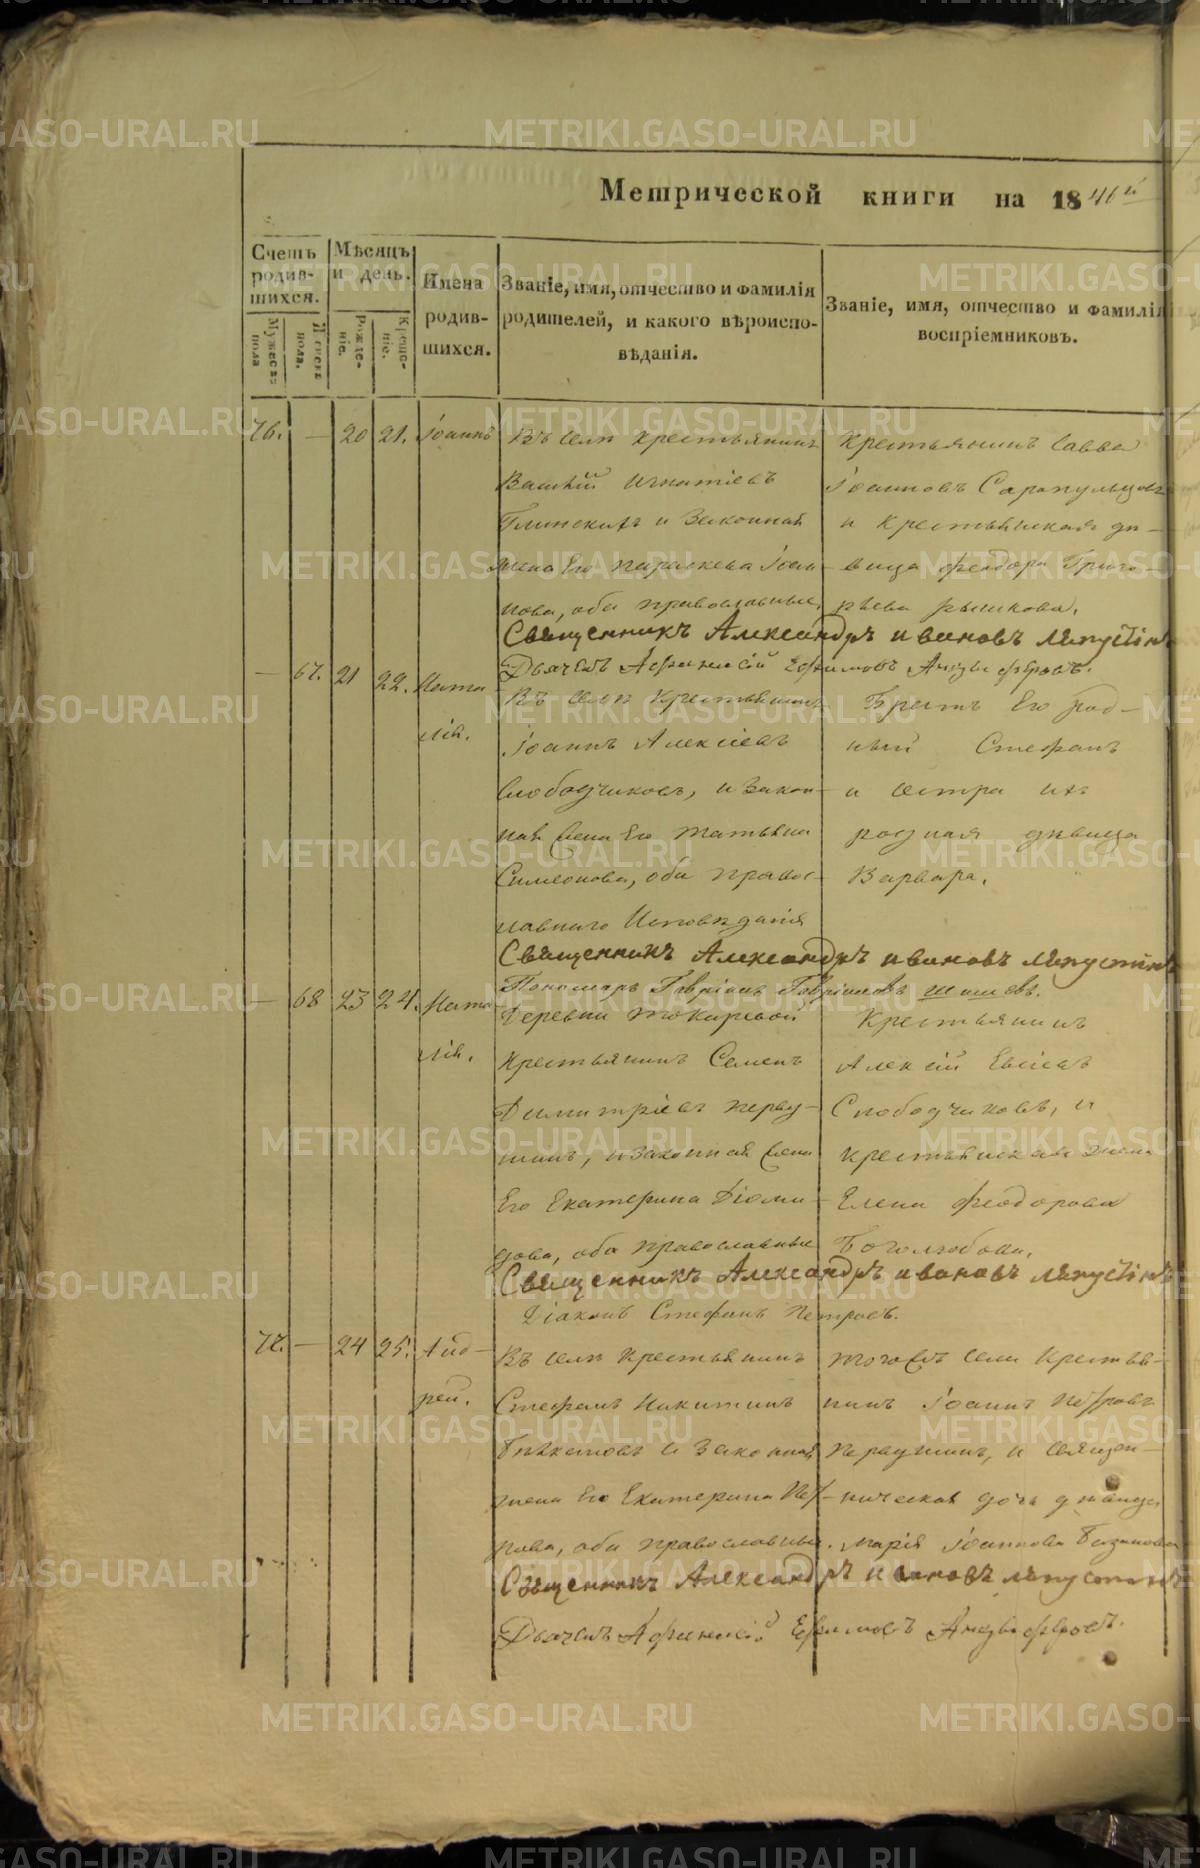 Метрической книги на 1846й
Счетъ родив-шихся.
Мужеска пола
Женска пола.
Мѣсяцъ и день.
Рожде-ніе.
Креще-ніе.
Имена родив-шихся.
Званіе, имя, отчество и фамилія родителей, и какого вѣроиспо-вѣданія.
Званіе, имя, отчество и фамилія воспріемниковъ.
76. — 20 21. Іоаннъ
Въ селѣ крестьянинъ
Василій Игнатіевъ
Глинскихъ и Законная
жена Его Параскева Іоан-
нова, оба православные,
Крестьянинъ Савва
Іоанновъ Сарапульцовъ
и Крестьянская дѣ-
вица Феодора Григо-
рьева рычкова,
Священникъ Александръ ивановъ ляпустинъ
Дьячекъ Афанасій Ефимовъ
— 67. 21 22. Ната
лія.
Въ селѣ Крестьянинъ
Іоаннъ Алексіевъ
Слободчиковъ, и Закон-
ная жена Его Татьяна
Симеонова, оба правос-
лавнаго Исповѣданія
Братъ Его род-
ный Стефанъ
и сестра ихъ
родная дѣвица
Варвара,
Священникъ Александръ ивановъ ляпустинъ
Пономарь Гавріилъ Гавріиловъ Шишевъ.
— 68 23 24. Ната
лія.
Деревни Токаревой
Крестьянинъ Семенъ
Димитріевъ Перву-
шинъ, и законная жена
Его Екатерина Діоми-
дова, оба православные
Крестьянинъ
Алексій Евсіевъ
Слободчиковъ, и
крестьянская жена
Елена Феодорова
Боголюбова,
Священникъ Александръ ивановъ ляпустинъ
Діаконъ Стефанъ Петровъ.
77. — 24 25. Анд-
рей.
Въ селѣ Крестьянинъ
Стефанъ Никитинъ
и Законная
жена Его Екатерина Пет-
рова, оба православные.
тогожъ села Крестья-
нинъ Іоаннъ Петровъ
Первушинъ, и священ-
ническая дочь дѣвица
Марія Іоаннова
Священникъ Александръ ивановъ ляпустинъ
Дьячекъ Афанасій Ефимовъ
METRIKI.GASO-URAL.RU